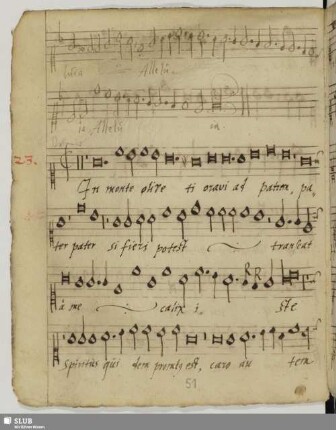 Alleluia
Alleluia
23.
In monte olive ti oravi ad patrem, pa,
ter pater si fieri potest transeat
à me calix i, ste
Spiritus qui dem promts est, caro au tem
51
SLUB